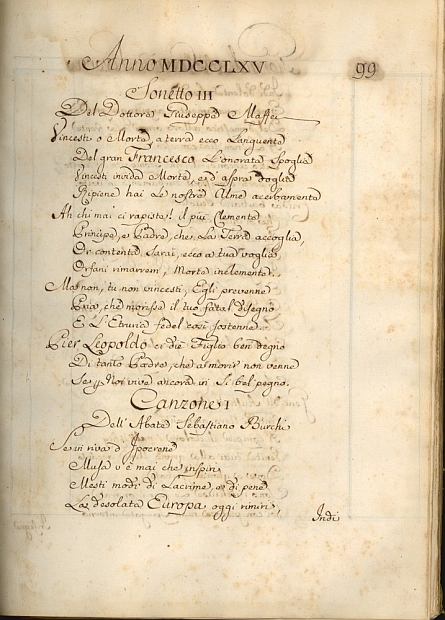 Anno MDCCLXV 99
Sonetto III
Del Dottore Giuseppe Maffei
Vincesti o Morte a terra ecco Languente
Del gran Francesco L'onorata Spoglia
Vincesti invida Morte, e d'aspra doglia
Ripiene hai Le nostre Alme acerbamente
Ah chi mai ci rapiste! il più Clemente
Principe, e Padre, che La Terra accoglia,
Or contenta Sarai, ecco a tua voglia
Orfani rimarrem, Morte inclemente.
Ma non, tu non vincesti, Egli prevenne
Pria, che moresse il tuo fatal disegno
E L'Etruria fedel così sostenne.
Pier Leopoldo ei diè Figlio ben degno
Di tanto Padre, che a morir non venne
Se Noi vive ancora in Sì bel pegno.
Canzone I
Dell'Abate Sebastiano Burchi
Se in riva d'Ipocrene
Musa v'è mai che inspiri
Mesti modi di Lacrime, e di pene
La desolata Europa oggi rimiri,
Indi